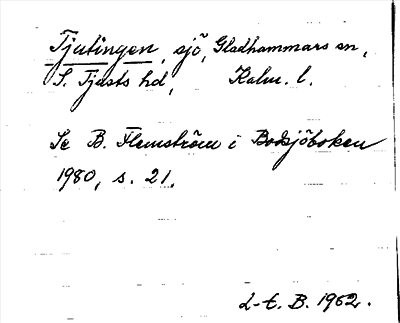 Tjutingen, sjö, Gladhammars sn,
S. Tjusts hd, Kalm. l.
Se B. Flemström i Bodsjöboken
1980, s. 21.
L-t. B. 1962.